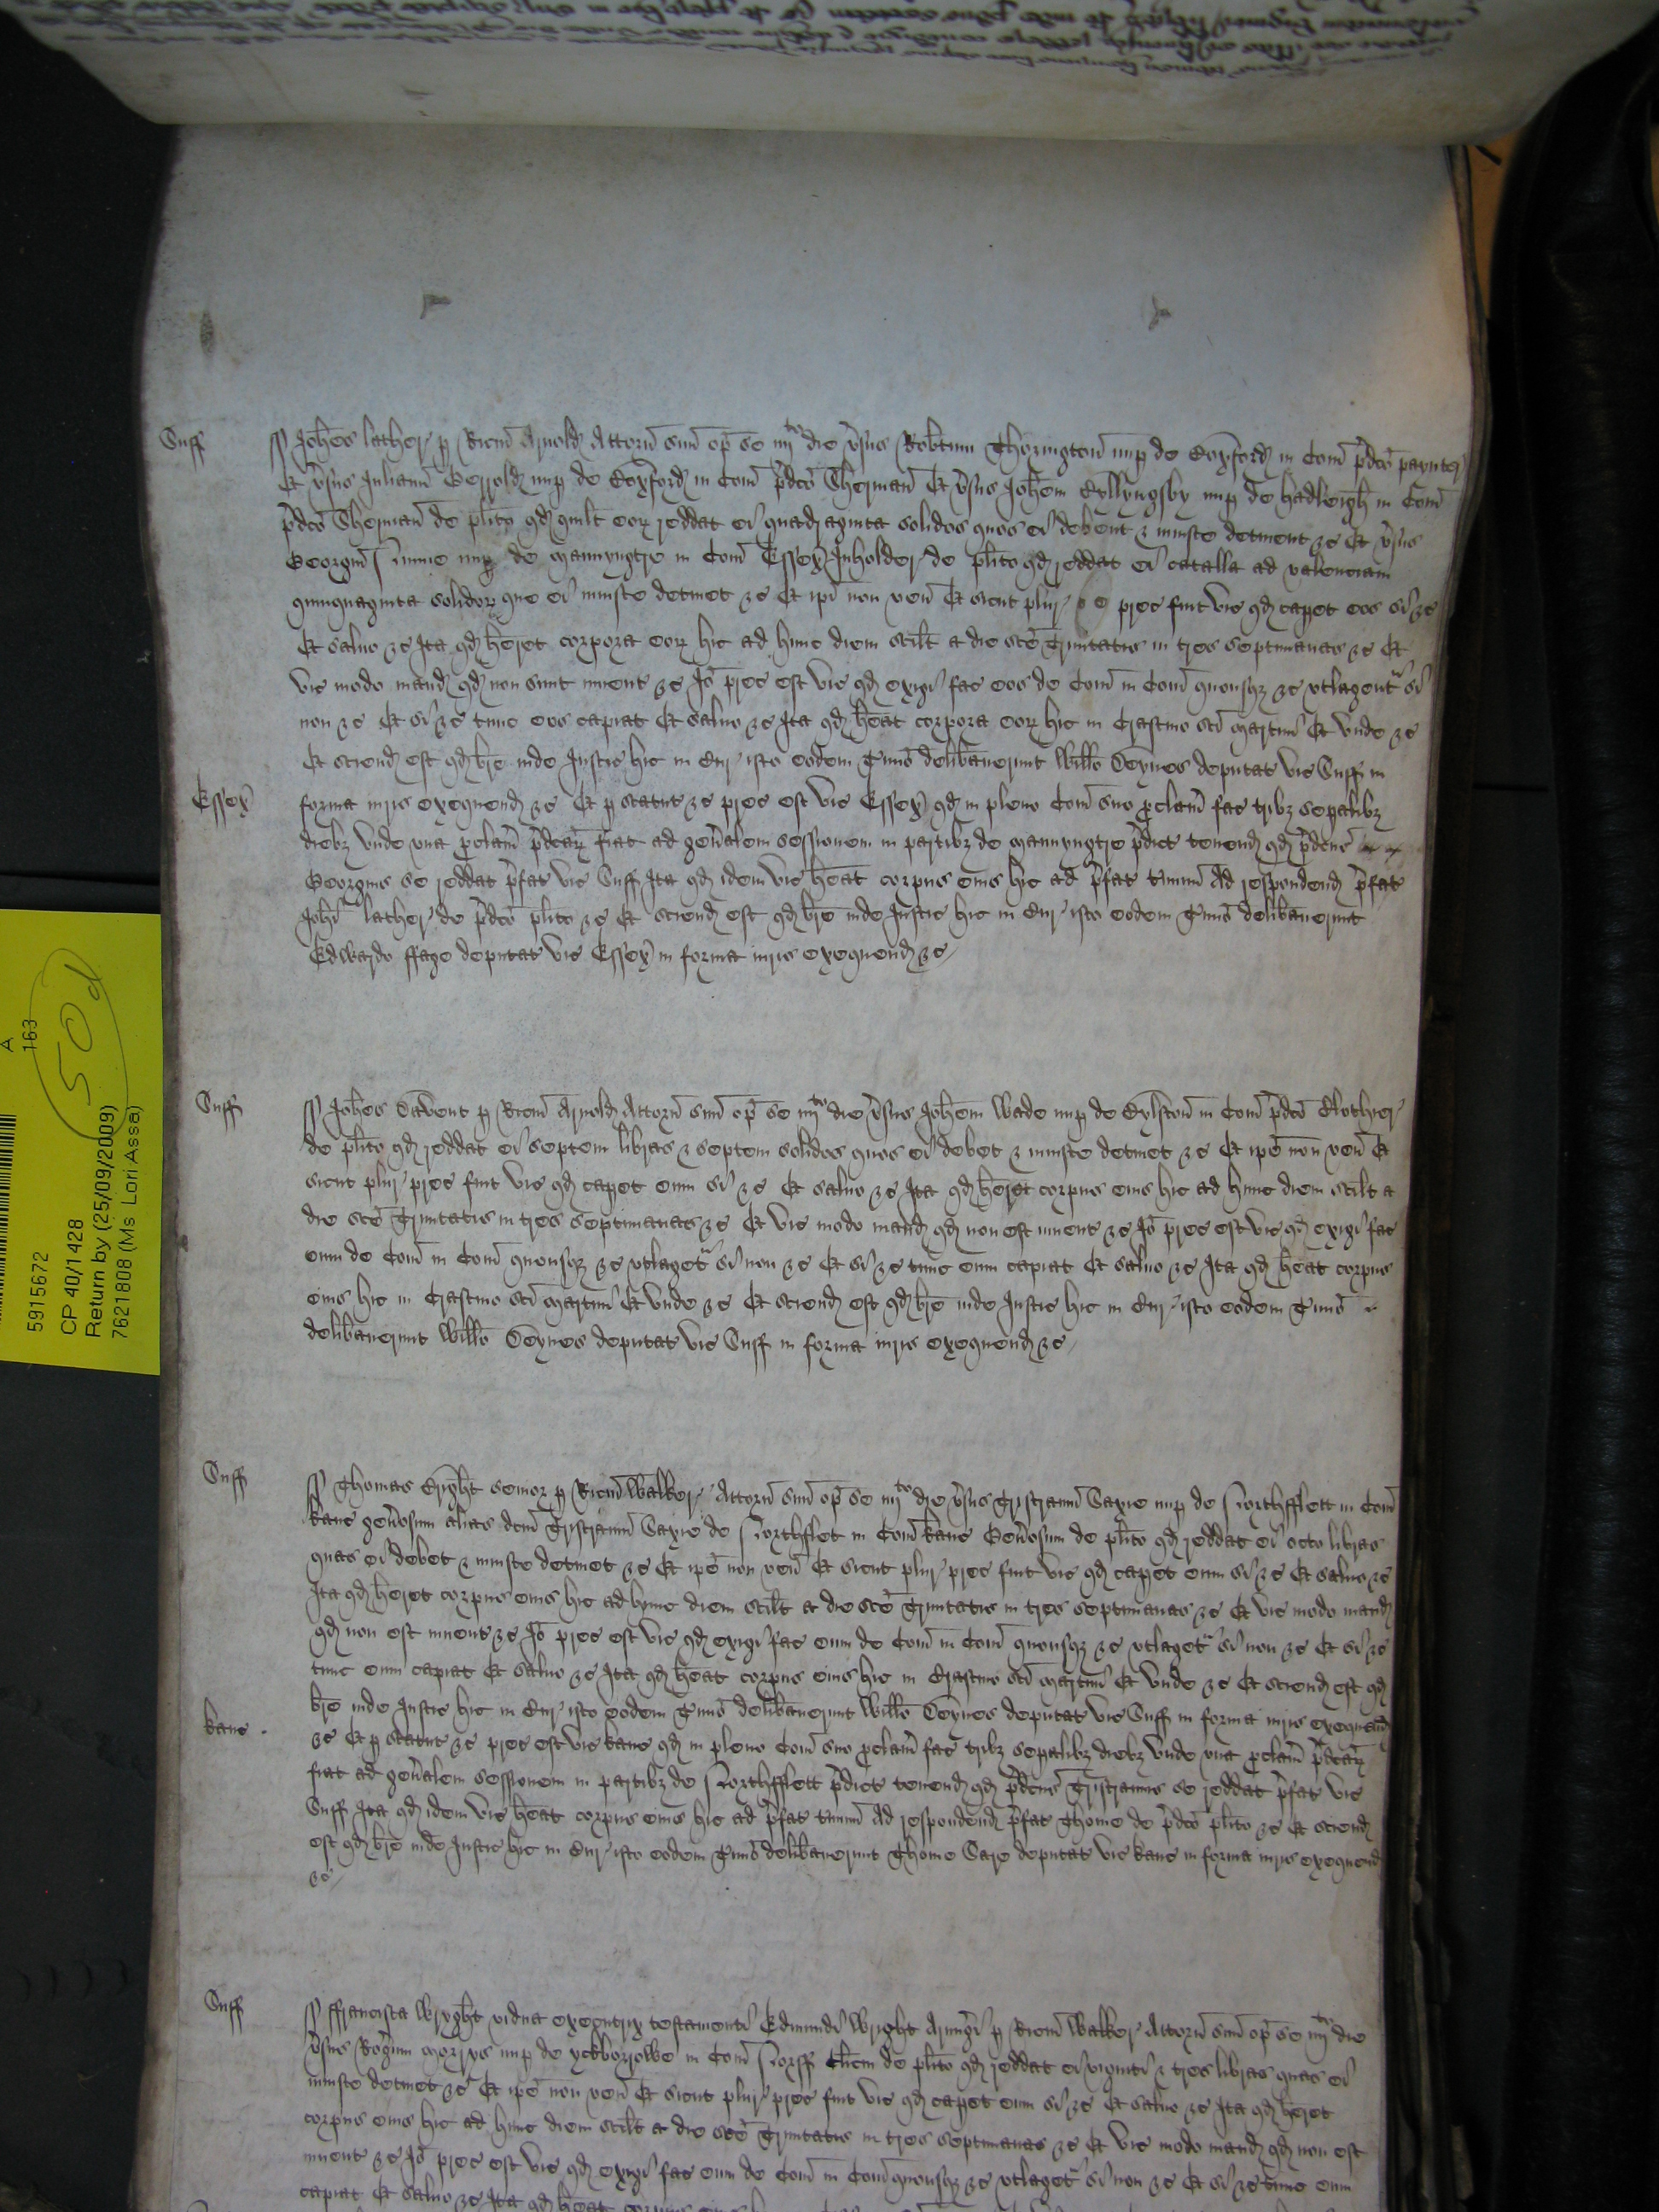 Suff
Joh̄es lather p Ricm̄ Arnold Attorn̄ sūm op̄ se iiijto die v̄sus Rob̄tum Thorington nup de Boxford in Com̄ p̄dc̄o paynter
Et v̄sus Julianū Gerrold nup de Boxford in Com̄ p̄dc̄o Sherman̄ Et v̄sus Joh̄em Byllyngsby nup de hadleigh in Com̄
p̄dc̄o Sherman̄ de pl̄ito qd quilt eor reddat ei quadraginta solidos quos ei debent & iniuste detinent &c Et v̄sus
Georgiū nup de Mannyngtre in Com̄ Essex Inholder de pl̄ito qd reddat ei catalla ad valenciam
quinquaginta solidor que ei iniuste detinet &c Et ip̄i non ven̄ Et sicut plur prec fuit vic qd capet eos si &c
Et saluo &c Ita qd h̄eret corpora eor hic ad hunc diem scilt a die sc̄e Trinitatis in tres septimanas &c Et
vic modo mand qd non sunt invent &c Io prec est vic qd exigi fac eos de Com̄ in Com̄ quousq &c utlagent si
non &c Et si &c tunc eos capiat Et saluo &c Ita qd h̄eat corpora eor hic in Crastino sc̄i Martini Et unde &c
Et sciend est qd br̄e inde Justic hic in Cur isto eodem Tmīo delib̄auerunt Willo Deynes deputat vic Suff in
Essex
forma iuris exequend &c Et p statut &c prec est vic Essex qd in pleno Com̄ suo p̄clam̄ fac trib sepalib
dieb unde una p̄clam̄ p̄dcar fiat ad gen̄alem sessionem in partib de Mannyngtre p̄dict tenend qd p̄dcus
Georgius se reddat p̄fat vic Suff Ita qd idem vic h̄eat corpus eius hic ad p̄fat tminū Ad respondend p̄fat
Joh̄i lather de p̄dc̄o pl̄ito &c Et sciend est qd br̄e inde Justic hic in Cur isto eodem Tmīo delib̄auerunt
Edwardo ffage deputat vic Essex in forma iuris exequend &c
Suff
Joh̄es p Ricm̄ Arnold Attorn̄ sūm op̄ se iiijto die v̄sus Joh̄em Wade nup de Bylston̄ in Com̄ p̄dc̄o Clothier
de pl̄ito qd reddat ei septem libras & septem solidos quos ei debet & iniuste detinet &c Et ip̄e non ven̄ Et
sicut plur prec fuit vic qd capet eum si &c Et saluo &c Ita qd h̄eret corpus eius hic ad hunc diem scilt a
die sc̄e Trinitatis in tres septimanas &c Et vic modo mand qd non est invent &c Io prec est vic qd exigi fac
eum de Com̄ in Com̄ quousq &c utlaget si non &c Et si &c tunc eum capiat Et saluo &c Ita qd h̄eat corpus
eius hic in Crastino sc̄i Martini Et unde &c Et sciend est qd br̄e inde Justic hic in Cur isto eodem Tmīo
delib̄auerunt Willo Deynes deputat vic Suff in forma iuris exequend &c
Suff
Thomas senior p Ricm̄ Walker Attorn̄ sūm op̄ se iiijto die v̄sus Tristramū Saxie nup de Northfflett in Com̄
kanc gen̄osum alias dcm̄ Tristramū Saxie de Northflet in Com̄ kanc Gen̄osum de pl̄ito qd reddat ei octo libras
quas ei debet & iniuste detinet &c Et ip̄e non ven̄ Et sicut plur prec fuit vic qd capet eum si &c Et saluo &c
Ita qd h̄eret corpus eius hic ad hunc diem scilt a die sc̄e Trinitatis in tres septimanas &c Et vic modo mand
qd non est invent &c Io prec est vic qd exigi fac eum de Com̄ in Com̄ quousq &c utlaget si non &c Et si &c
tunc eum capiat Et saluo &c Ita qd h̄eat corpus eius hic in Crastino sc̄i Martini Et unde &c Et sciend est qd
br̄e inde Justic hic in Cur isto eodem Tmīo delib̄auerunt Willo Deynes deputat vic Suff in forma iuris exequend
kanc
&c Et p statut &c prec est vic kanc qd in pleno Com̄ suo p̄clam̄ fac trib sepalib dieb unde una p̄clam̄ p̄dcar
fiat ad gen̄alem sessionem in partib de Northfflett p̄dict tenend qd p̄dcus Tristramus se reddat p̄fat vic
Suff Ita qd idem vic h̄eat corpus eius hic ad p̄fat tminū Ad respondend p̄fat Thome de p̄dc̄o pl̄ito &c Et sciend
est qd br̄e inde Justic hic in Cur isto eodem Tmīo delib̄auerunt Thome deputat vic kanc in forma iuris exequend
&c
Suff
ffrancisca Wryght vidua executrix testamenti Edmundi Wright Armigi p Ricm̄ Walker Attorn̄ sūm op̄ se iiijto die
v̄sus Rogerum nup de yckborowe in Com̄ Norff Clicum de pl̄ito qd reddat ei viginti & tres libras quas ei
iniuste detinet &c Et ip̄e non ven̄ Et sicut plur prec fuit vic qd capet eum si &c Et saluo &c Ita qd h̄eret
corpus eius hic ad hunc diem scilt a die sc̄e Trinitatis in tres septimanas &c Et vic modo mand qd non est
invent &c Io prec est vic qd exigi fac eum de Com̄ in Com̄ quousq &c utlaget si non &c Et si &c tunc eum
capiat Et saluo &c Ita qd h̄eat corpus eius hic
A
163
50d
5915672
CP 40/1428
Return by (25/09/2009)
7621808 (Ms Lori Assa)